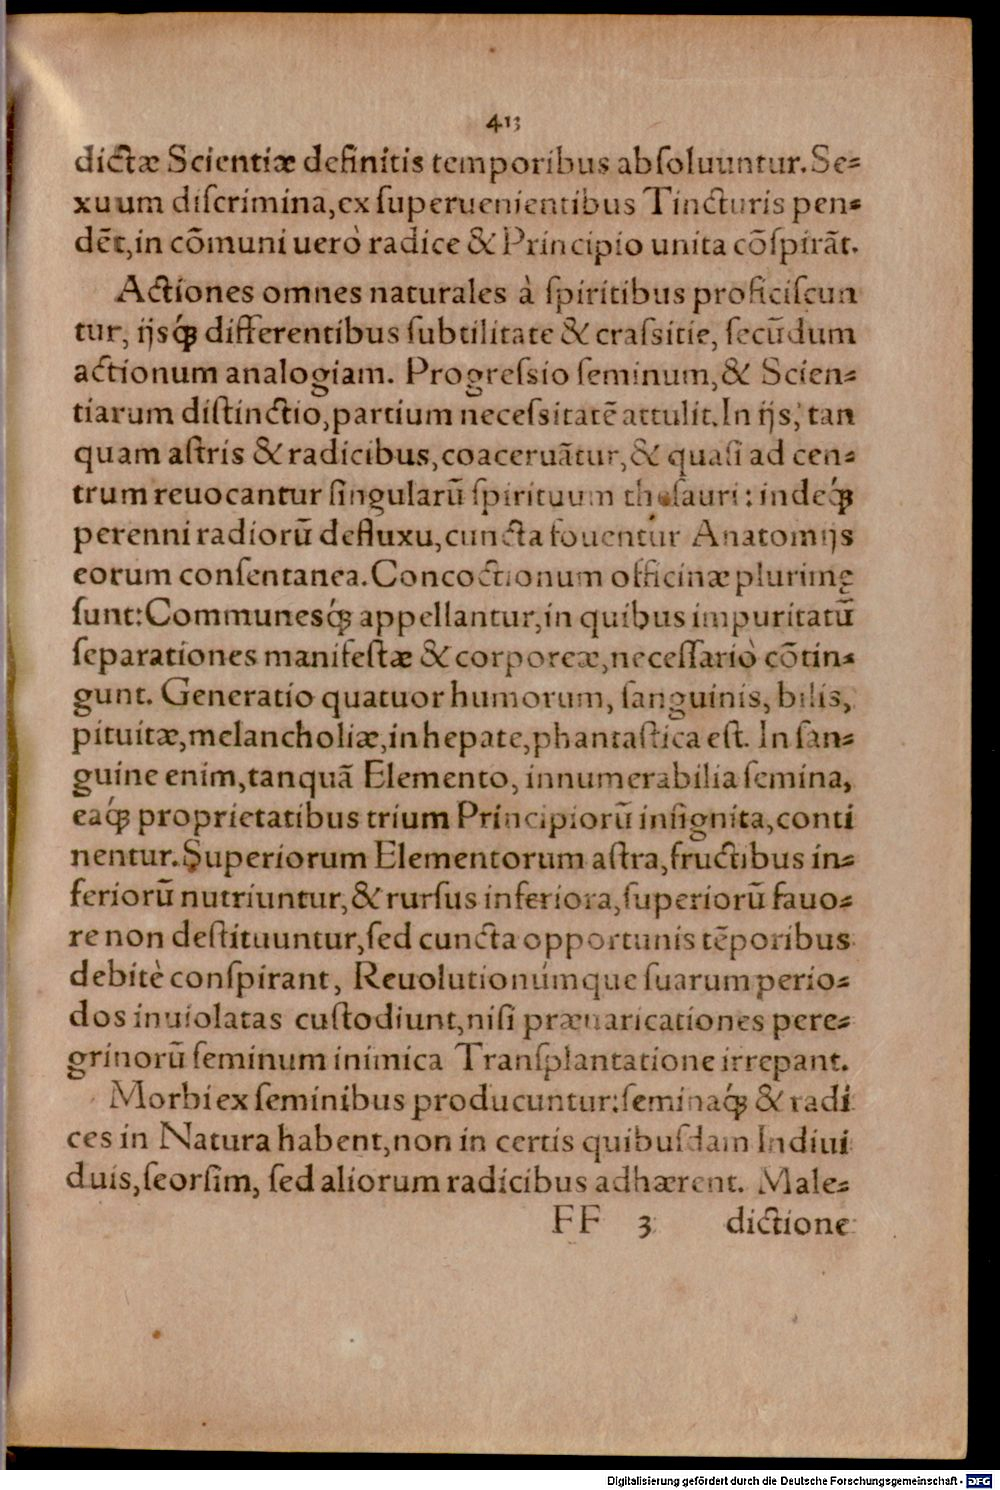 413
dictæ Scientiæ definitis temporibus absoluuntur. Se-
xuum discrimina, ex superuenientibus Tincturis pen-
dēt, in cōmuni uerò radice & Principio unita cōspirāt.
Actiones omnes naturales à spiritibus proficiscun
tur, ijsq́; differentibus subtilitate & crassitie, secūdum
actionum analogiam. Progressio seminum, & Scien-
tiarum distinctio, partium necessitatē attulit. In ijs, tan
quam astris & radicibus, coaceruātur, & quasi ad cen-
trum reuocantur singularū spirituum thesauri: indeq́;
perenni radiorū defluxu, cuncta fouentur Anatomijs
eorum consentanea. Concoctionum officinæ plurimę
sunt: Communesq́; appellantur, in quibus impuritatū
separationes manifestæ & corporeæ, necessariò cōtin-
gunt. Generatio quatuor humorum, sanguinis, bilis,
pituitæ, melancholiæ, in hepate, phantastica est. In san-
guine enim, tanquā Elemento, innumerabilia semina,
eaq́; proprietatibus trium Principiorū insignita, conti
nentur. Superiorum Elementorum astra, fructibus in-
feriorū nutriuntur, & rursus inferiora, superiorū fauo-
re non destituuntur, sed cuncta opportunis tēporibus
debitè conspirant, Reuolutionúmque suarum perio-
dos inuiolatas custodiunt, nisi præuaricationes pere-
grinorū seminum inimica Transplantatione irrepant.
Morbi ex seminibus producuntur: seminaq́; & radi
ces in Natura habent, non in certis quibusdam Indiui
duis, seorsim, sed aliorum radicibus adhærent. Male-
FF 3 dictione
Digitalisierung gefördert durch die Deutsche Forschungsgemeinschaft - DFG